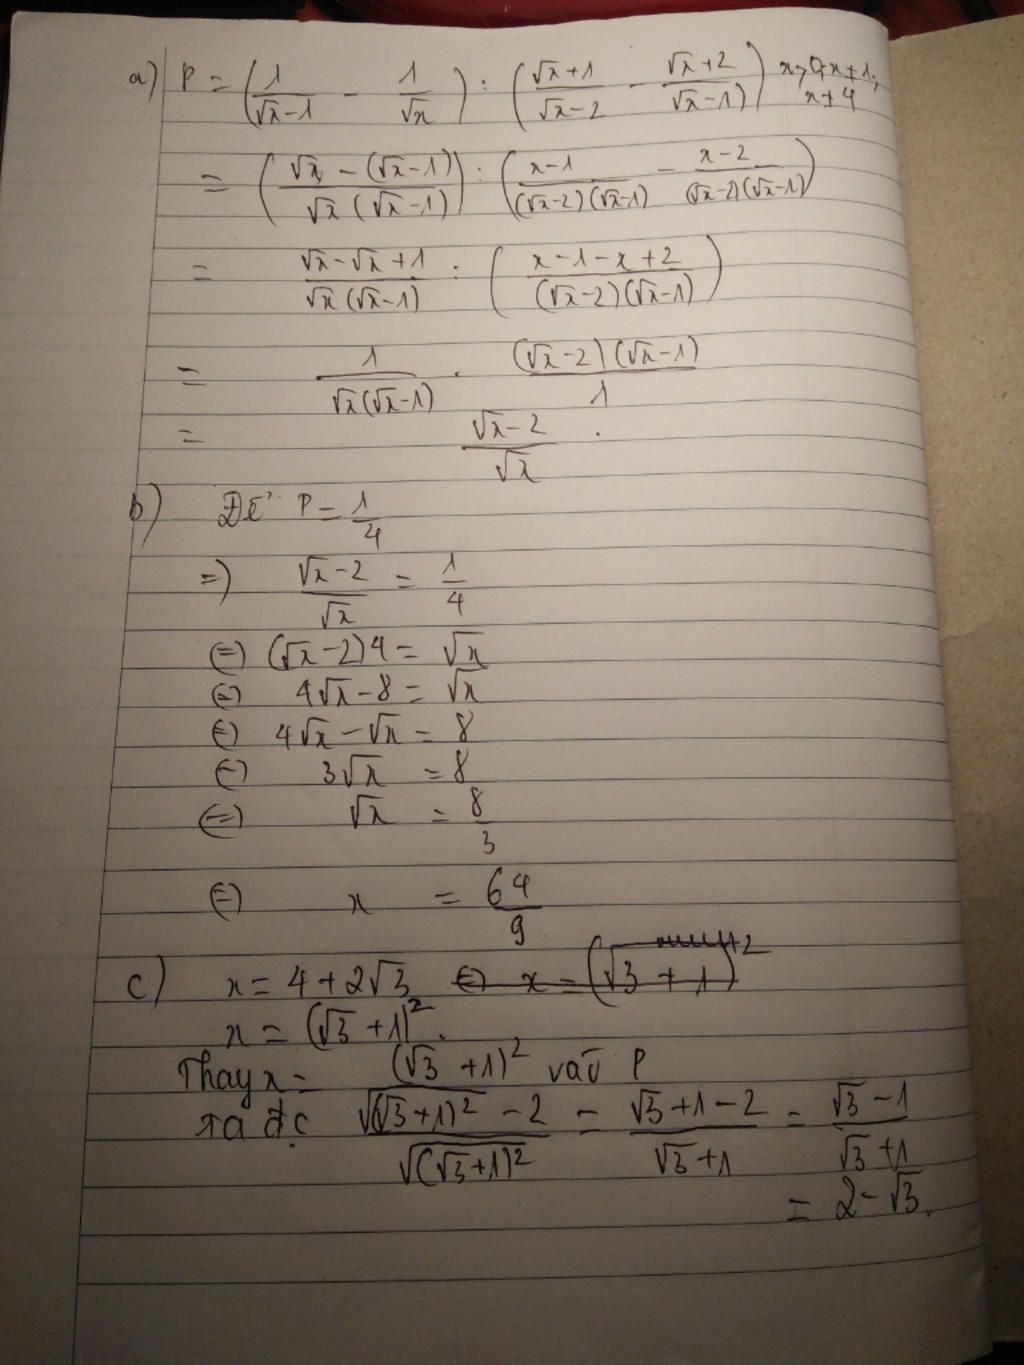 a) P = (1/(√x-1) - 1/√x) : ((√x+1)/(√x-2) - (√x+2)/(√x-1)) x>0, x≠1; x≠4
= ((√x - (√x-1))/(√x(√x-1))) : ((x-1)/((√x-2)(√x-1)) - (x-2)/((√x-2)(√x-1)))
= (√x-√x+1)/(√x(√x-1)) : ((x-1-x+2)/((√x-2)(√x-1)))
= 1/(√x(√x-1)) . ((√x-2)(√x-1))/1
= (√x-2)/√x .
b) Để P = 1/4
=) (√x-2)/√x = 1/4
(=) (√x-2)4 = √x
(=) 4√x-8 = √x
(=) 4√x-√x = 8
(=) 3√x = 8
(=) √x = 8/3
(=) x = 64/9
c) x = 4+2√3 (=) x = (√3 + 1)²
x = (√3+1)².
Thay x = (√3+1)² vào P
ta đc (√(√3+1)² - 2)/√(√3+1)² = (√3+1-2)/(√3+1) = (√3-1)/(√3+1)
= 2-√3.